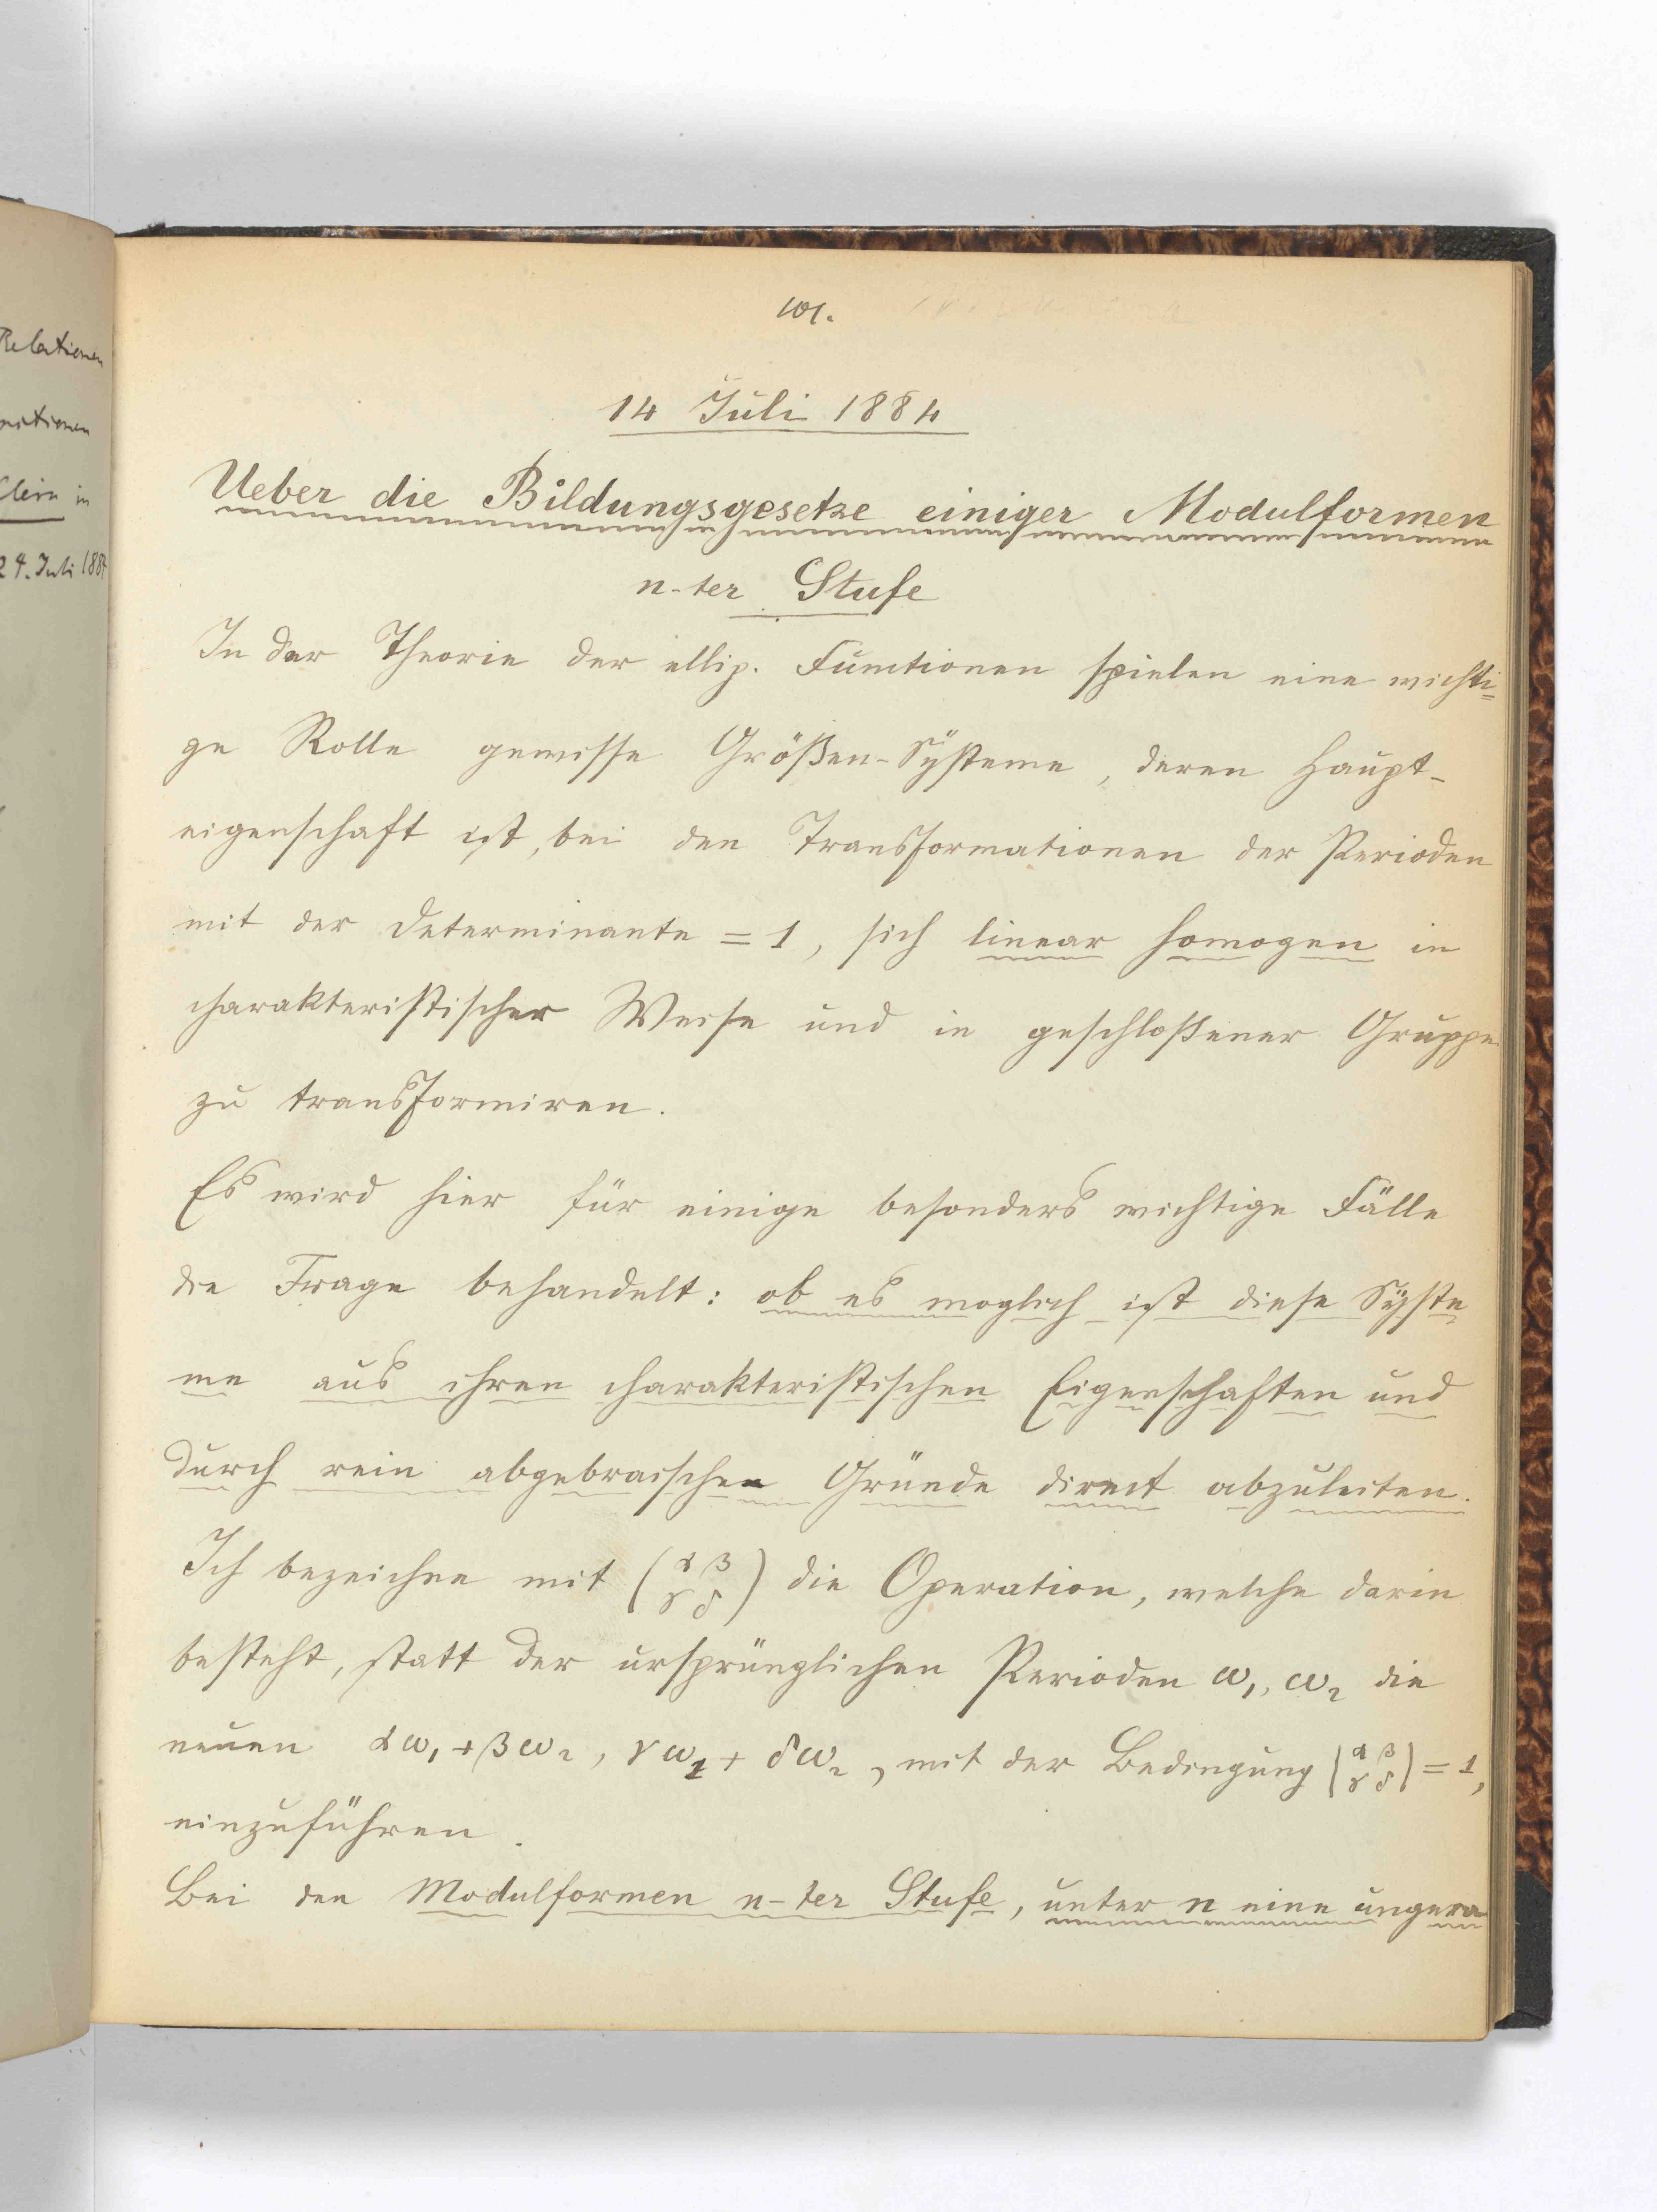 Relationen
nitionen
Klein in
24. Juli 1884
101.
14 Juli 1884
Ueber die Bildungsgesetze einiger Modulformen
n-ter Stufe
In der Theorie der ellip. Functionen spielen eine wichti=
ge Rolle gewisse Größen-Systeme, deren Haupt-
eigenschaft ist, bei den Transformationen der Perioden
mit der Determinante = 1, sich linear homogen in
charakteristischer Weise und in geschloßener Gruppe
zu transformiren.
Es wird hier für einige besonders wichtige Fälle
die Frage behandelt: ob es moglich ist diese Syste
me aus ihren charakteristischen Eigenschaften und
durch rein abgebraischen Gründe direct abzuleiten.
Ich bezeichne mit (α β γ δ) die Operation, welche darin
besteht, statt der ursprünglichen Perioden ω₁, ω₂ die
neuen αω₁+βω₂, γω₁+δω₂, mit der Bedingung |α β γ δ| = 1,
einzuführen.
Bei den Modulformen n-ter Stufe, unter n eine ungera